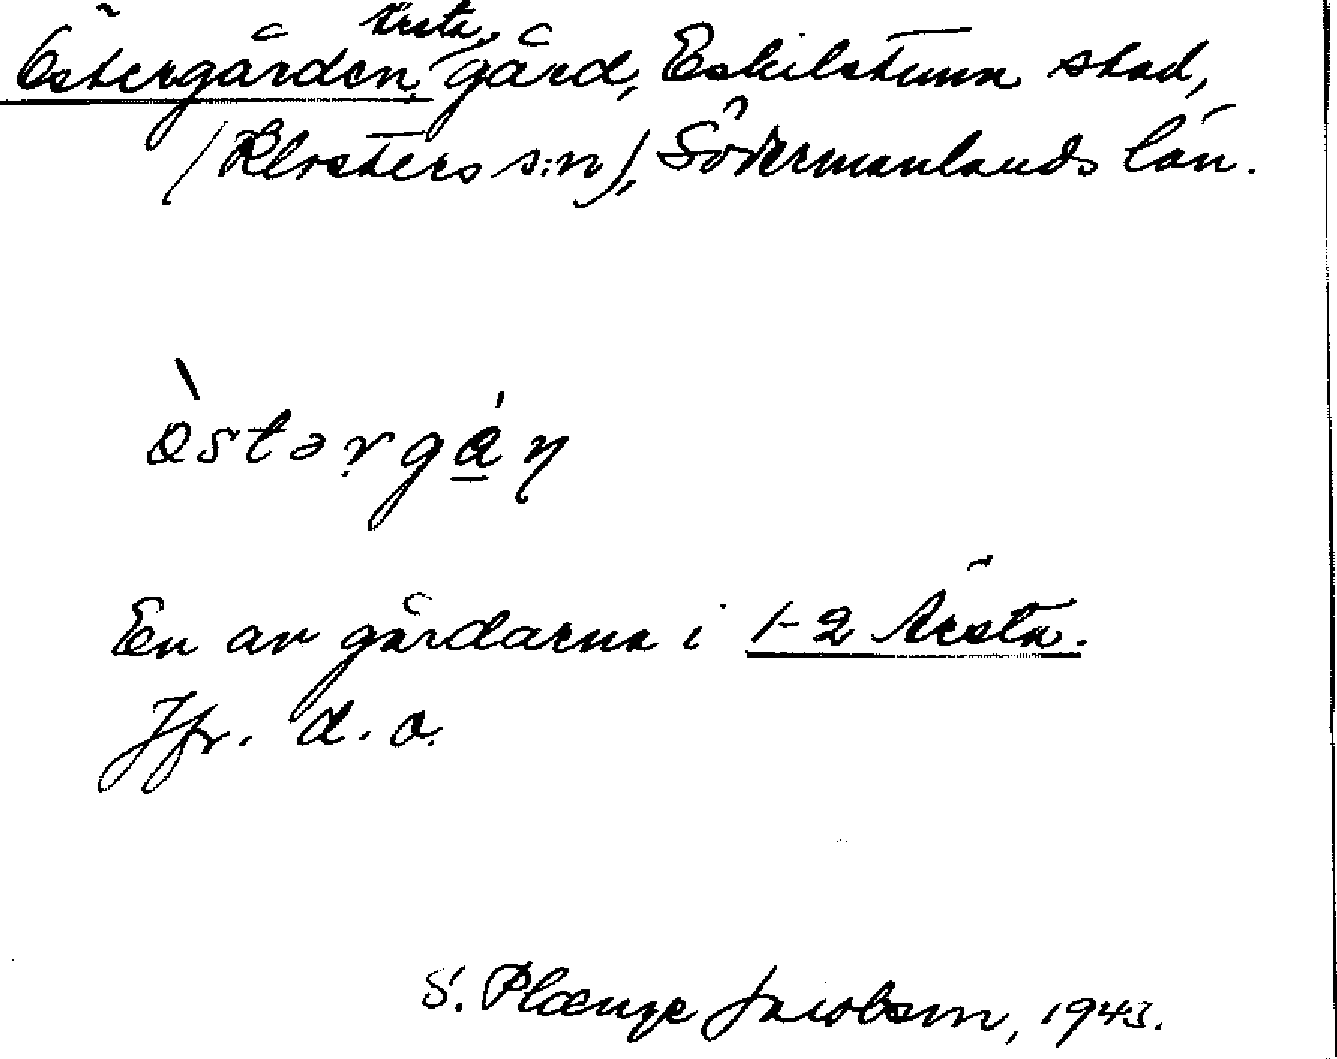 Årsta,
Östergården, gård, Eskilstuna stad,
(Klosters s:n), Södermanlands län.
òstərgá̱ṇ
En av gårdarna i 1-2 Årsta.
Jfr. d.o.
S. Plænge Jacobson, 1943.